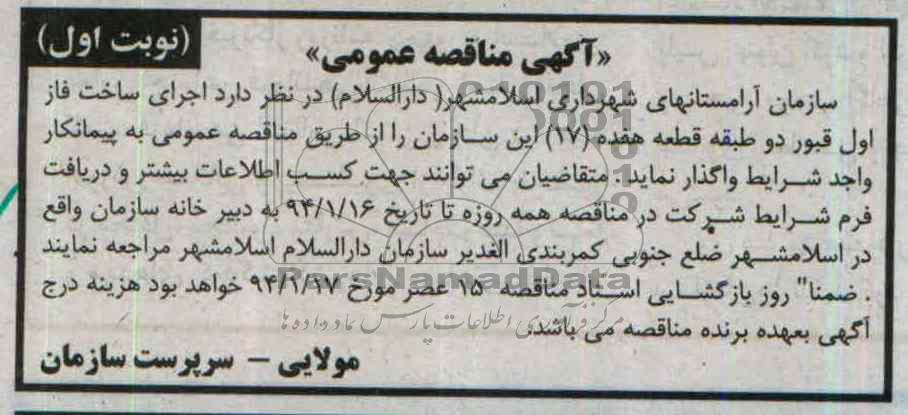 (نوبت اول)
«آگهی مناقصه عمومی»
سازمان آرامستانهای شهرداری اسلامشهر( دارالسلام) در نظر دارد اجرای ساخت فاز
اول قبور دو طبقه قطعه هفده (۱۷) این سازمان را از طریق مناقصه عمومی به پیمانکار
واجد شرایط واگذار نماید. متقاضیان می توانند جهت کسب اطلاعات بیشتر و دریافت
فرم شرایط شرکت در مناقصه همه روزه تا تاریخ ۹۴/۱/۱۶ به دبیر خانه سازمان واقع
در اسلامشهر ضلع جنوبی کمربندی الغدیر سازمان دارالسلام اسلامشهر مراجعه نمایند
. ضمنا" روز بازگشایی اسناد مناقصه ۱۵ عصر مورخ ۹۴/۱/۱۷ خواهد بود هزینه درج
آگهی بعهده برنده مناقصه می باشد.
مولایی – سرپرست سازمان
ParsNamadData
مرکز فرآوری اطلاعات پارس نماد داده ها